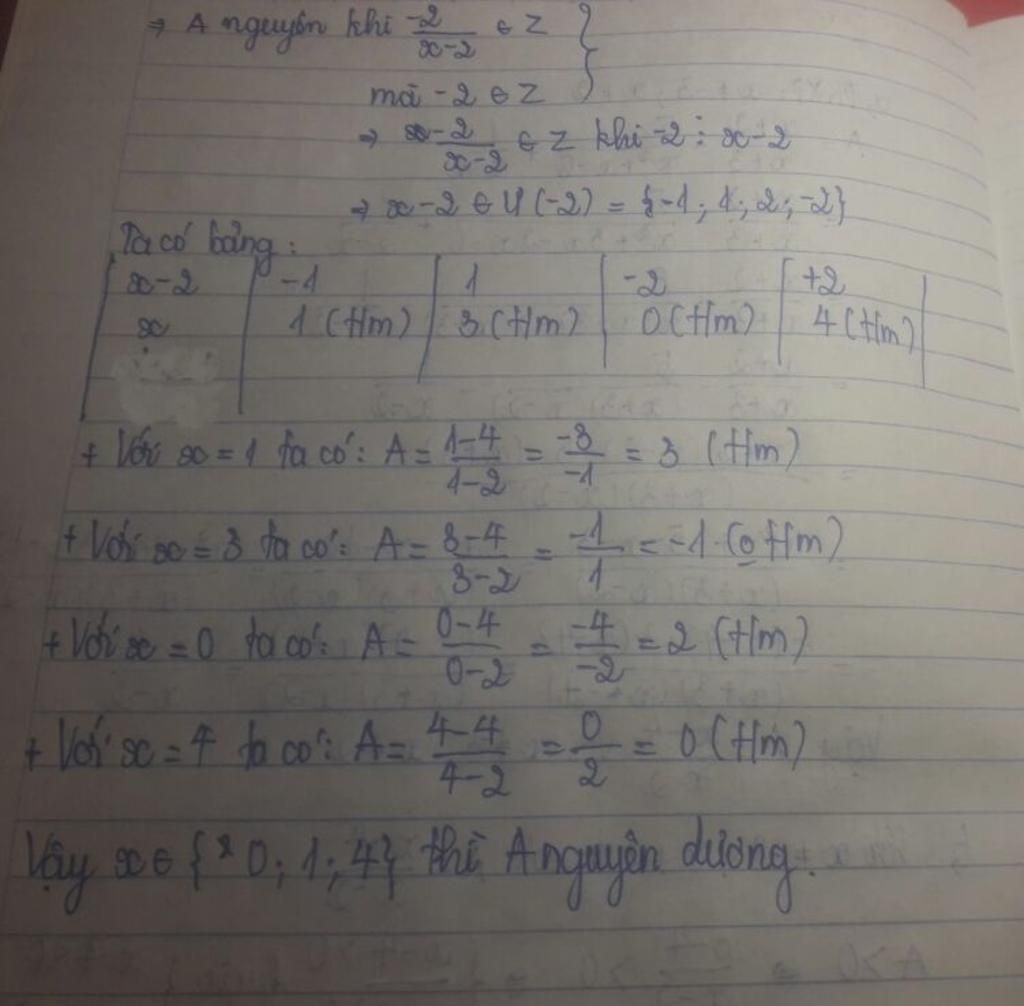 ⇒ A nguyên khi -2/(x-2) ∈ Z }
mà -2 ∈ Z
⇒ x-2/(x-2) ∈ Z khi -2 ⋮ x-2
⇒ x-2 ∈ Ư(-2) = {-1; 1; 2; -2}
Ta có bảng:
x-2 | -1 | 1 | -2 | +2
x | 1 (t/m) | 3 (t/m) | 0 (t/m) | 4 (t/m)
+ Với x = 1 ta có: A = (1-4)/(1-2) = -3/-1 = 3 (t/m)
+ Với x = 3 ta có: A = (3-4)/(3-2) = -1/1 = -1 (o t/m)
+ Với x = 0 ta có: A = (0-4)/(0-2) = -4/-2 = 2 (t/m)
+ Với x = 4 ta có: A = (4-4)/(4-2) = 0/2 = 0 (t/m)
Vậy x ∈ { 0; 1; 4} thì A nguyên dương.